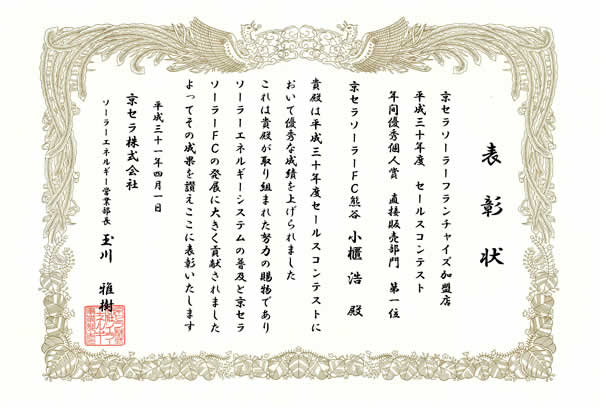 表彰状
京セラソーラーフランチャイズ加盟店
平成三十年度 セールスコンテスト
年間優秀個人賞 直接販売部門 第一位
京セラソーラーFC熊谷 小櫃 浩 殿
貴殿は平成三十年度セールスコンテストに
おいて優秀な成績を上げられました
これは貴殿が取り組まれた努力の賜物であり
ソーラーエネルギーシステムの普及と京セラ
ソーラーFCの発展に大きく貢献されました
よってその成果を讃えここに表彰いたします
平成三十一年四月一日
京セラ株式会社
ソーラーエネルギー営業部長 玉川 雅樹